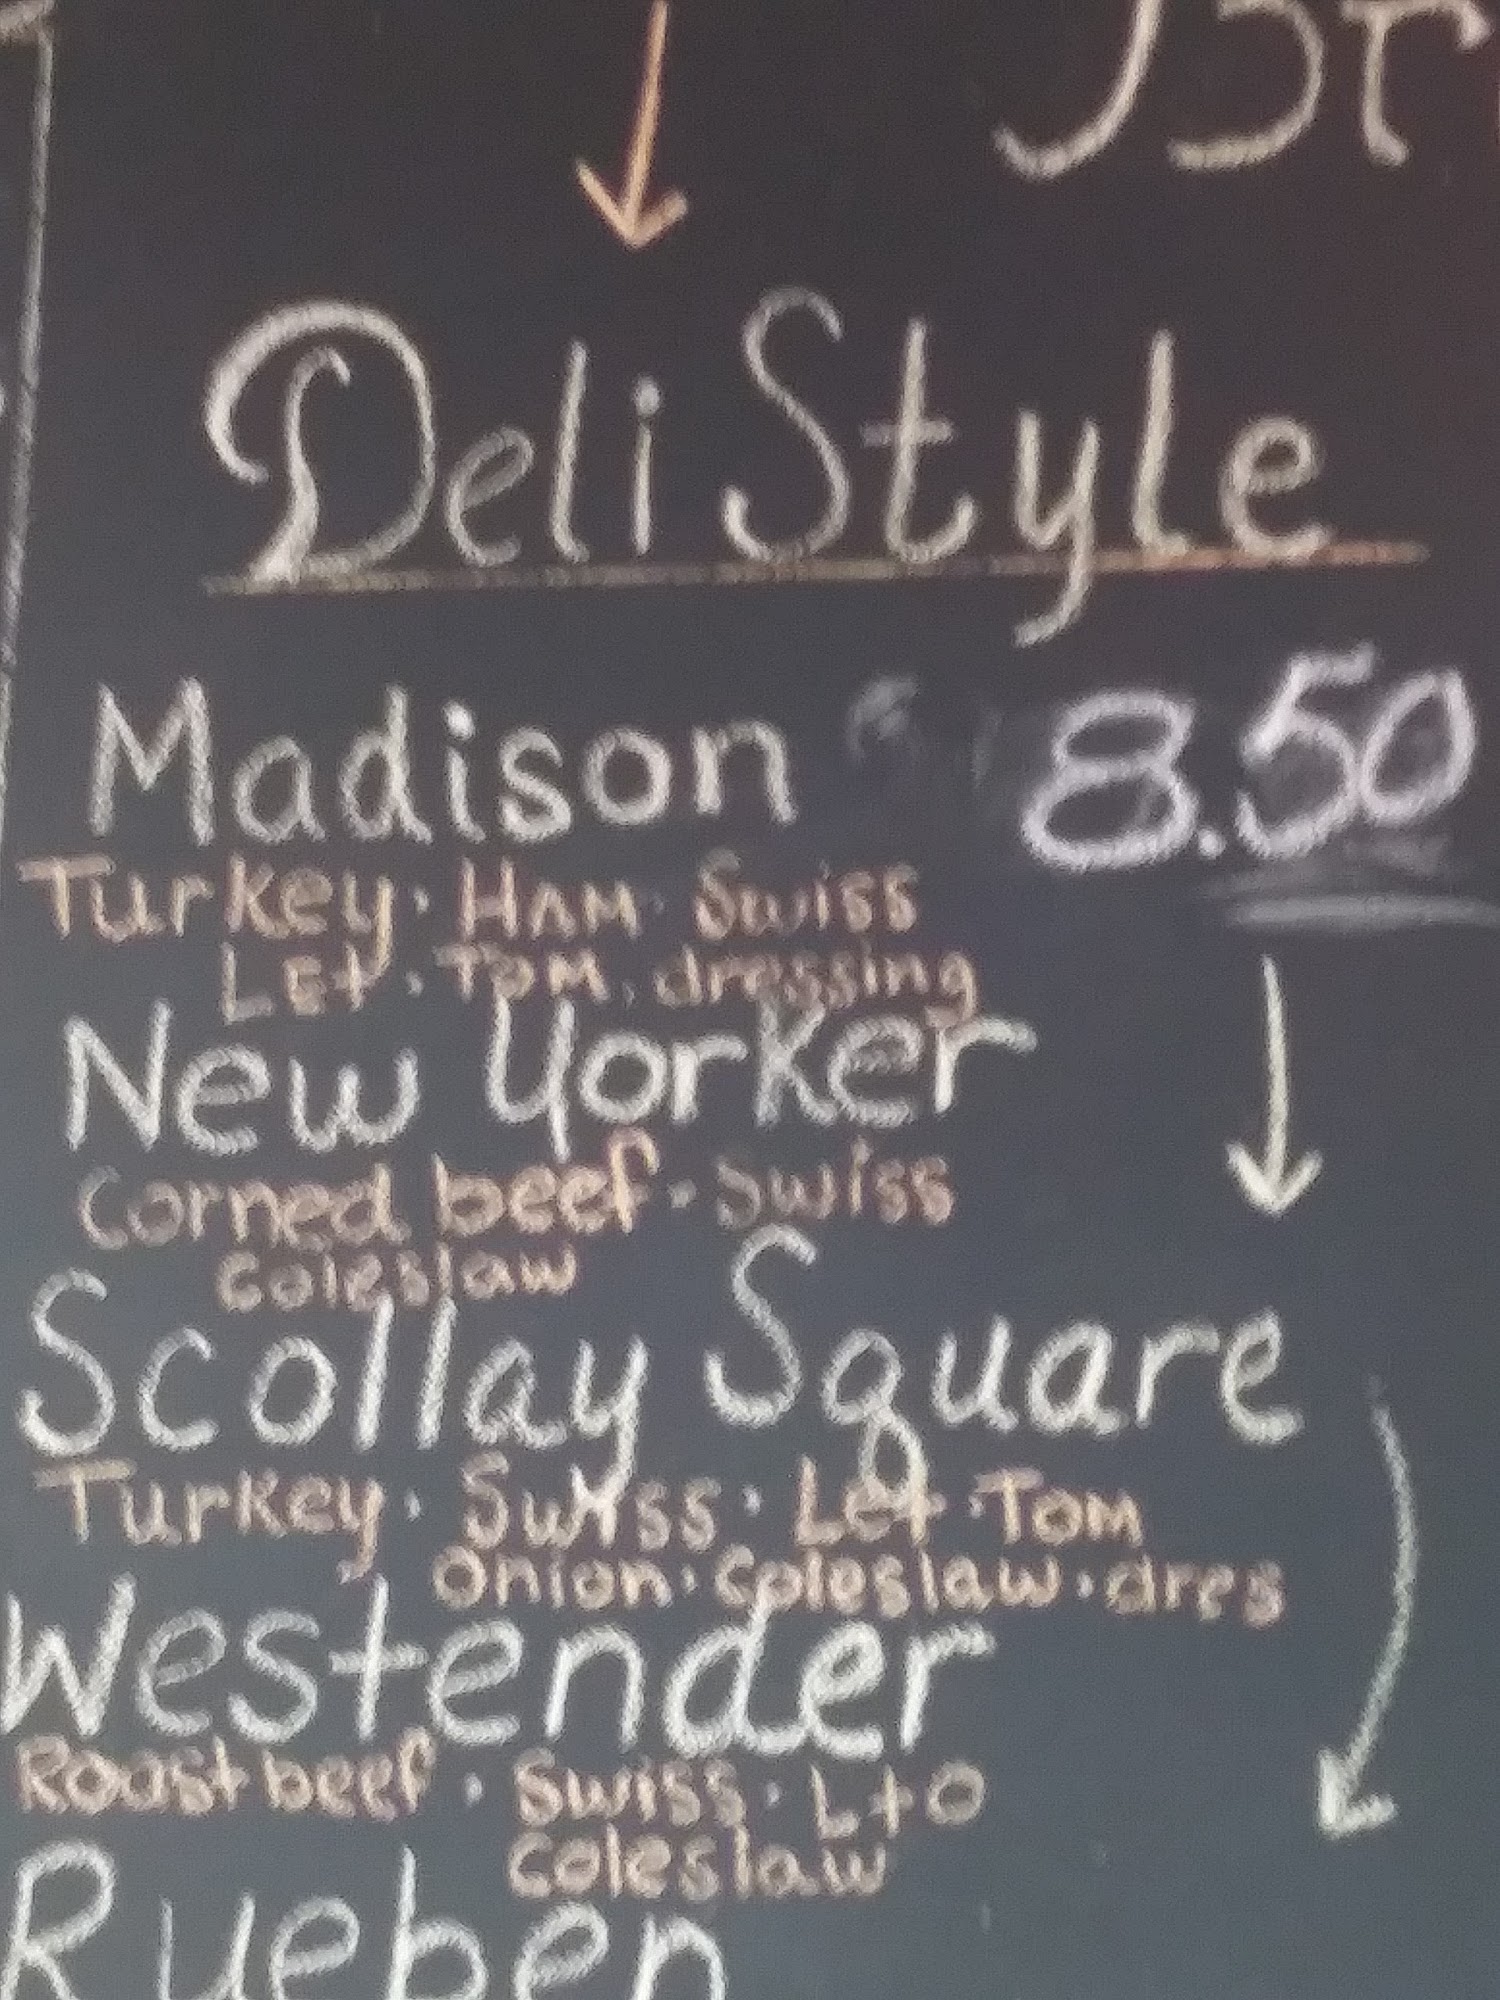 Deli Style
Madison 8.50
Turkey · HAM · Swiss
LEt · TOM · dressing
New Yorker
Corned beef · Swiss
Coleslaw
Scollay Square
Turkey · Swiss · Let · TOM
Onion · Coleslaw · dres
Westender
Roast beef · Swiss · L+O
Coleslaw
Rueben